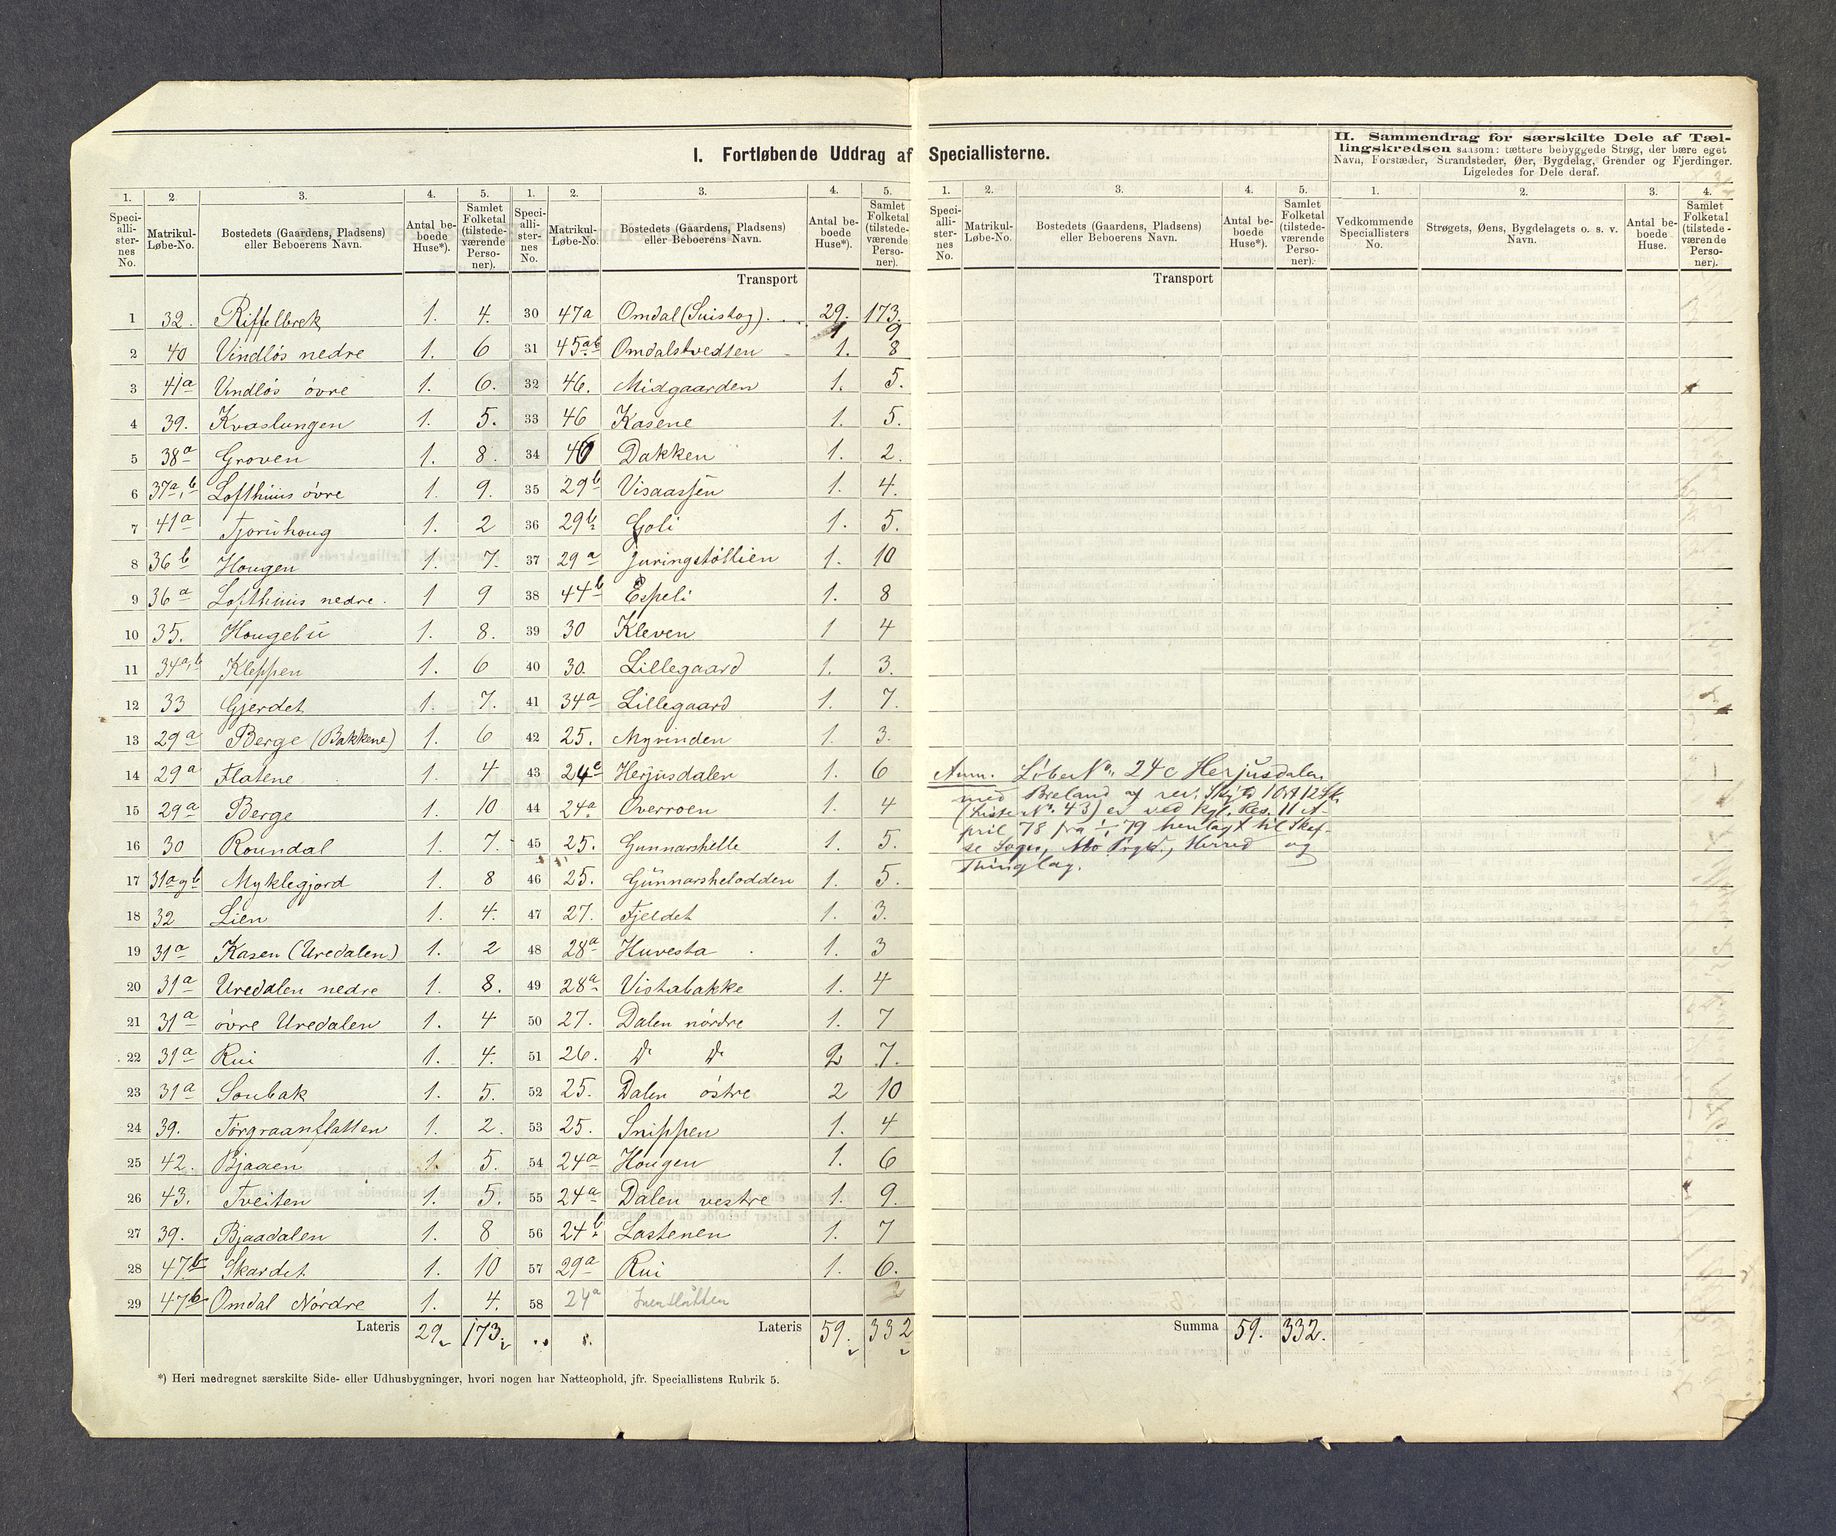 I. Fortløbende Uddrag af Speciallisterne.
II. Sammendrag for særskilte Dele af Tæl-
lingskredsen saasom: tættere bebyggede Strøg, der bære eget
Navn, Forstæder, Strandsteder, Øer, Bygdelag, Grender og Fjerdinger.
Ligeledes for Dele deraf.
1. 2. 3. 4. 5. 1. 2. 3. 4. 5. 1. 2. 3. 4. 5. 1. 2. 3. 4.
Speci-allister-nes No. Matrikul-Løbe-No. Bostedets (Gaardens, Pladsens) eller Beboerens Navn. Antal be-boede Huse*). Samlet Folketal (tilstede-værende Perso-ner).
Speci-allister-nes No. Matrikul-Løbe-No. Bostedets (Gaardens, Pladsens) eller Beboerens Navn. Antal be-boede Huse*). Samlet Folketal (tilstede-værende Perso-ner).
Speci-allister-nes No. Matrikul-Løbe-No. Bostedets (Gaardens, Pladsens) eller Beboerens Navn. Antal be-boede Huse*). Samlet Folketal (tilstede-værende Perso-ner).
Vedkommende Speciallisters No. Strøgets, Øens, Bygdelagets o. s. v. Navn. Antal be-boede Huse. Samlet Folketal (tilstede-værende Perso-ner).
Transport 29. 173.
Transport
1 32. Riffelbrek 1. 4. 30 47a Omdal (Suistog) 1 9
2 40 Vindlös nedre 1. 6 31 45ab Omdalstvedten 1. 8
3 41a Vindlös övre 1. 6. 32 46. Midgaarden 1. 5.
4 39. Kvaslungen 1. 5. 33 46 Kasene 1. 5.
5 38a Groven 1. 8. 34 46 Dakken 1. 2.
6 37a,b Lofthuus övre 1. 9. 35 29b Visaassen 1. 4.
7 41a Tjoruhoug 1. 2 36 29b Goli 1. 5.
8 36b Hougen 1. 7. 37 29a Juringstöllien 1. 10
9 36a Lofthuus nedre. 1 9 38 44b Espeli 1. 8
10 35. Hougebu 1. 8. 39 30 Kleven 1 4
11 34a,b Kleppen 1. 6 40 30. Lillegaard 1. 3.
12 33 Gjerdet 1. 7. 41 34a Lillegaard 1. 7.
13 29a Berge (Bakkene) 1. 6 42 25. Myrinden 1. 3.
14 29a Flatene 1. 4 43 24c Herjusdalen 1. 6
15 29a Berge 1. 10 44 24a Överroen 1. 4
16 30 Roundal 1. 7. 45 25. Gunnarshelle 1. 5.
17 31a og b Myklegjord 1. 8 46 25. Gunnarshelodden 1. 5.
18 32 Lien 1. 4. 47 27. Fjeldet 1. 3.
19 31a Kasen (Uredalen) 1. 2 48 28a Huvesta 1. 3
20 31a Uredalen nedre 1. 8. 49 28a Vistabakke 1. 4
21 31a övre Uredalen 1. 4 50 27. Dalen nördre 1. 7
22 31a Rui 1. 4. 51 26. D° D° 2 7.
23 31a Soubak 1. 5. 52 25. Dalen östre 2 10
24 39. Torgraanflatten 1. 2. 53 25. Snippen 1. 4
25 42. Bjaaen 1. 5. 54 24a Hougen 1. 6
26 43. Tveiten 1. 5. 55 24a Dalen vestre 1. 9.
27 39. Bjaadalen 1. 8 56 24b Lastenen 1. 7
28 47b Skardet 1. 10 57 29a Rui 1. 6.
29 47b Omdal Nördre 1. 4. 58 24a 2
Lateris 29. 173. Lateris 59. 332
Summa 59. 332.
Anm. Löbe No. 24c Herjusdalen
med Breland af rev. Skyld 1 Ort 12 Sk.
(Liste No. 43) er ved kgl. Res. 11 A
pril 78 fra 1/1 79 henlagt til Skaf-
se Sogn, Mo Prgld., Herred og
Thinglag.
*) Heri medregnet særskilte Side- eller Udhusbygninger, hvori nogen har Natteophold, jfr. Speciallistens Rubrik 5.